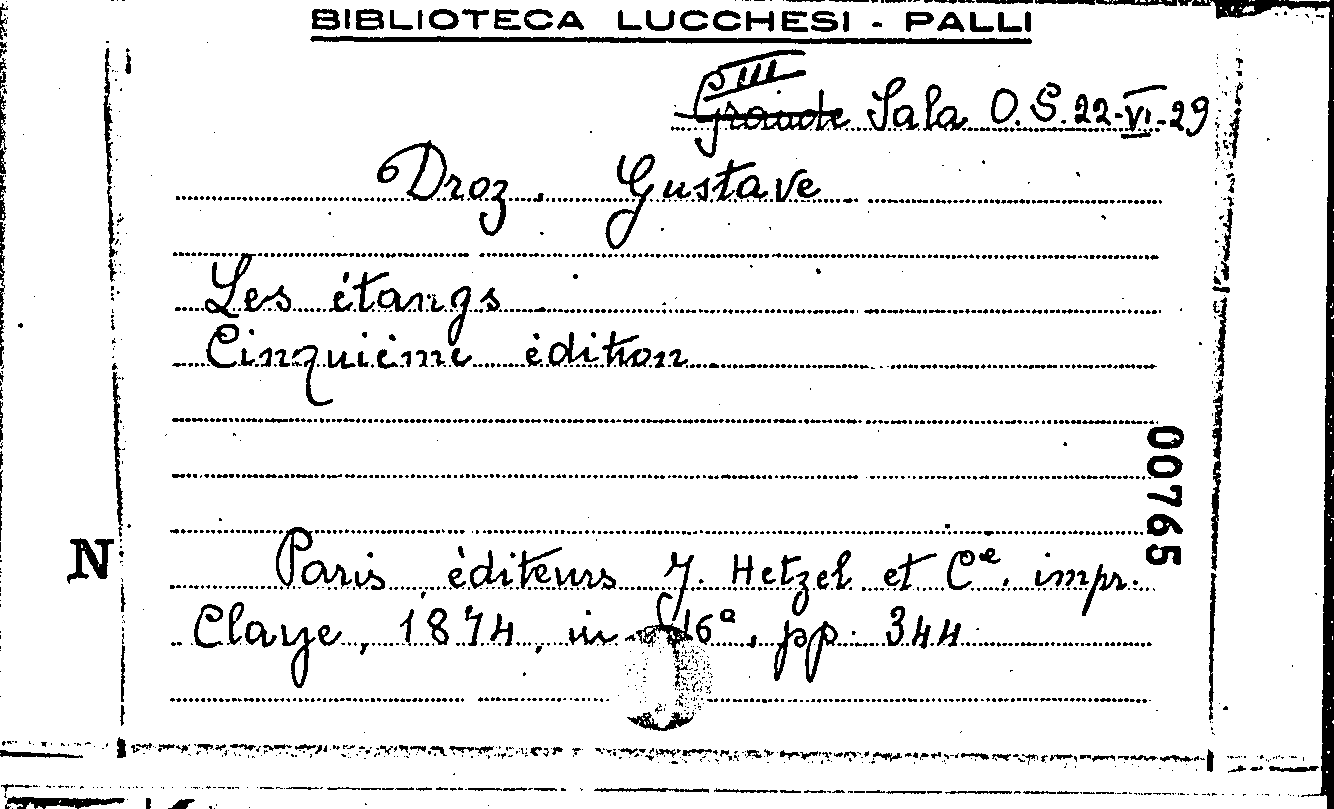 BIBLIOTECA LUCCHESI - PALLI
III
Grande Sala O. S. 22-VI-29
Droz, Gustave
Les étangs
Cinquième édition
00765
N
Paris, èditeurs J. Hetzel et Cᵉ, impr.
Claye, 1874, in-16º, pp. 344